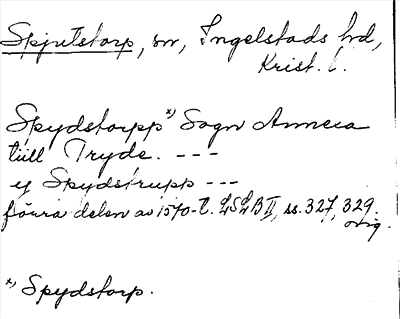 Spjutstorp, sn, Ingelstads hd,
Krist. l.
Spydstorpp x) Sogn Annexa
tiill Tryde. ---
ij Spydstrupp ---
förra delen av 1570-t. LSLB II, ss. 327, 329.
orig.
x) Spydstorp.